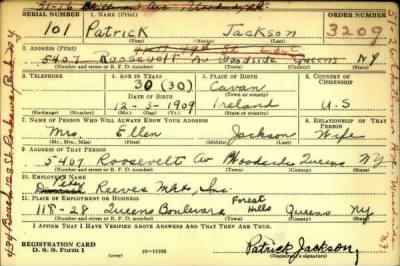 51-16 Skillman Av Woodside
SERIAL NUMBER 1. NAME (Print) ORDER NUMBER
101 Patrick Jackson 3209
(First) (Middle) (Last)
2. ADDRESS (Print)
5407 Roosevelt Av Woodside Queens N.Y.
(Number and street or R. F. D. number) (Town) (County) (State)
3. TELEPHONE 4. AGE IN YEARS 5. PLACE OF BIRTH 6. COUNTRY OF CITIZENSHIP
30 (30) Cavan
DATE OF BIRTH (Town or county)
12-3-1909 Ireland U.S
(Exchange) (Number) (Mo.) (Day) (Yr.) (State or country)
7. NAME OF PERSON WHO WILL ALWAYS KNOW YOUR ADDRESS 8. RELATIONSHIP OF THAT PERSON
Mrs. Ellen Jackson Wife
(Mr., Mrs., Miss) (First) (Middle) (Last)
9. ADDRESS OF THAT PERSON
5407 Roosevelt Av Woodside Queens NY
(Number and street or R. F. D. number) (Town) (County) (State)
10. EMPLOYER'S NAME
Peter Reeves Mkts, Inc.
11. PLACE OF EMPLOYMENT OR BUSINESS
118-28 Queens Boulevard Forest Hills Queens NY
(Number and street or R. F. D. number) (Town) (County) (State)
I AFFIRM THAT I HAVE VERIFIED ABOVE ANSWERS AND THAT THEY ARE TRUE.
REGISTRATION CARD
D. S. S. Form 1
Patrick Jackson
(Registrant's signature)
439 Beach 123 St Rockaway Park N.Y.